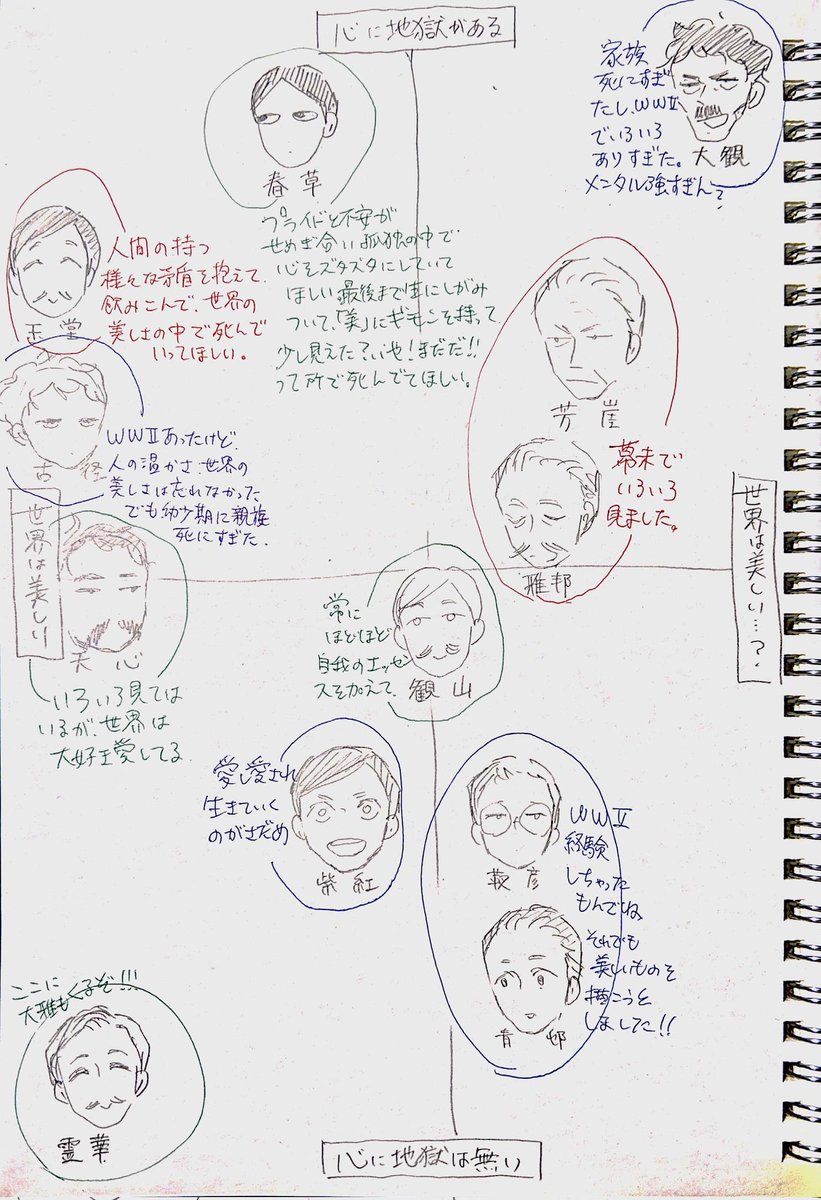 心に地獄がある
家族
死にすぎ
たし、WWⅡ
でいろいろ
ありすぎた。
メンタル強すぎん?
大観
春草
プライドと不安が
せめぎ合い孤独の中で
心をズタズタにしていて
ほしい最後まで生にしがみ
ついて、「美」にギモンを持って、
少し見えた?いや!まだだ!!
って所で死んでてほしい。
人間の持つ
様々な矛盾を抱えて、
飲みこんで、世界の
美しさの中で死んで
いってほしい。
玉堂
芳崖
幕末で
いろいろ
見ました。
雅邦
WWⅡあったけど、
人の温かさ世界の
美しさは忘れなかった
でも幼少期に親族
死にすぎた.
古径
世界は美しい
世界は美しい…?
天心
いろいろ見ては
いるが、世界は
大好き愛してる
常に
ほどほど
自我のエッセ
ンスを加えて、
観山
愛し愛され
生きていく
のがさだめ
紫紅
WWⅡ
経験
しちゃった
もんでね、
それでも
美しいものを
描こうと
しました!!
靫彦
青邨
ここに
大雅もくるぞ!!!
霊華
心に地獄は無い